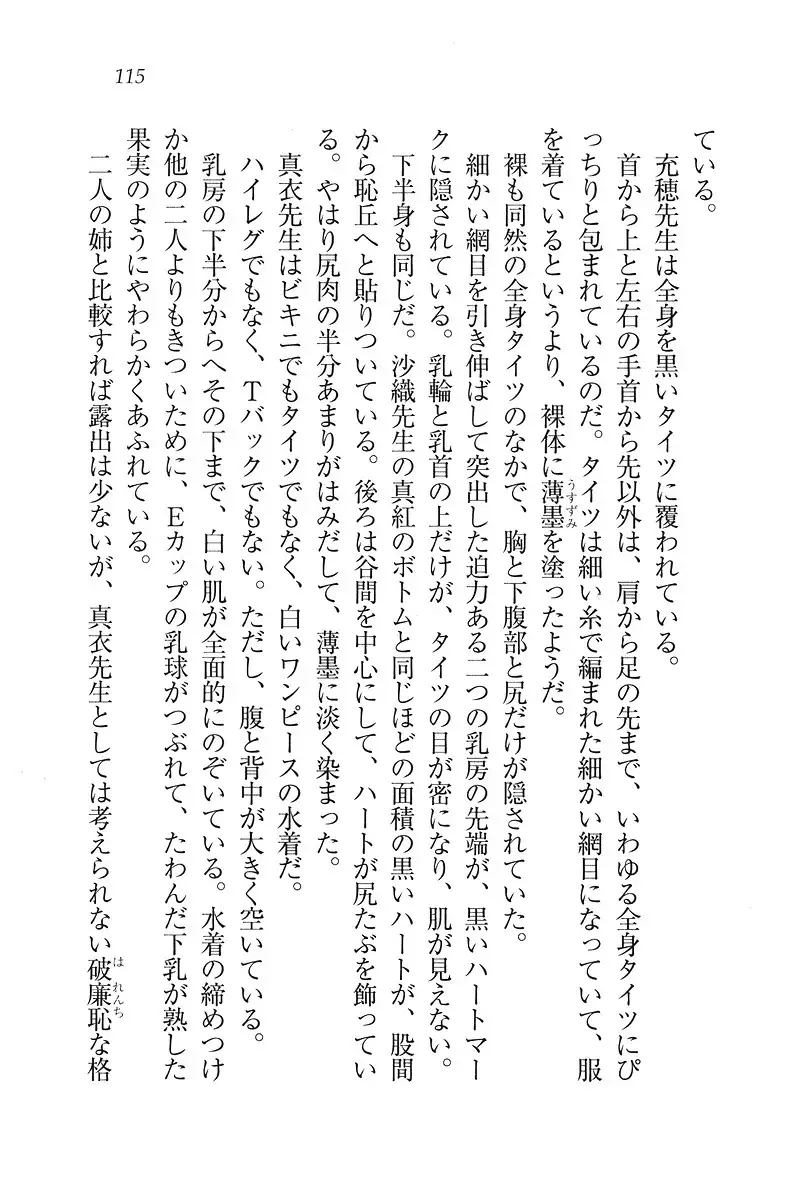 115
ている。
充穂先生は全身を黒いタイツに覆われている。
首から上と左右の手首から先以外は、肩から足の先まで、いわゆる全身タイツにぴ
っちりと包まれているのだ。タイツは細い糸で編まれた細かい網目になっていて、服
を着ているというより、裸体に薄墨を塗ったようだ。
裸も同然の全身タイツのなかで、胸と下腹部と尻だけが隠されていた。
細かい網目を引き伸ばして突出した迫力ある二つの乳房の先端が、黒いハートマー
クに隠されている。乳輪と乳首の上だけが、タイツの目が密になり、肌が見えない。
下半身も同じだ。沙織先生の真紅のボトムと同じほどの面積の黒いハートが、股間
から恥丘へと貼りついている。後ろは谷間を中心にして、ハートが尻たぶを飾ってい
る。やはり尻肉の半分あまりがはみだして、薄墨に淡く染まった。
真衣先生はビキニでもタイツでもなく、白いワンピースの水着だ。
ハイレグでもなく、Tバックでもない。ただし、腹と背中が大きく空いている。
乳房の下半分からへその下まで、白い肌が全面的にのぞいている。水着の締めつけ
か他の二人よりもきついために、Eカップの乳球がつぶれて、たわんだ下乳が熟した
果実のようにやわらかくあふれている。
二人の姉と比較すれば露出は少ないが、真衣先生としては考えられない破廉恥な格